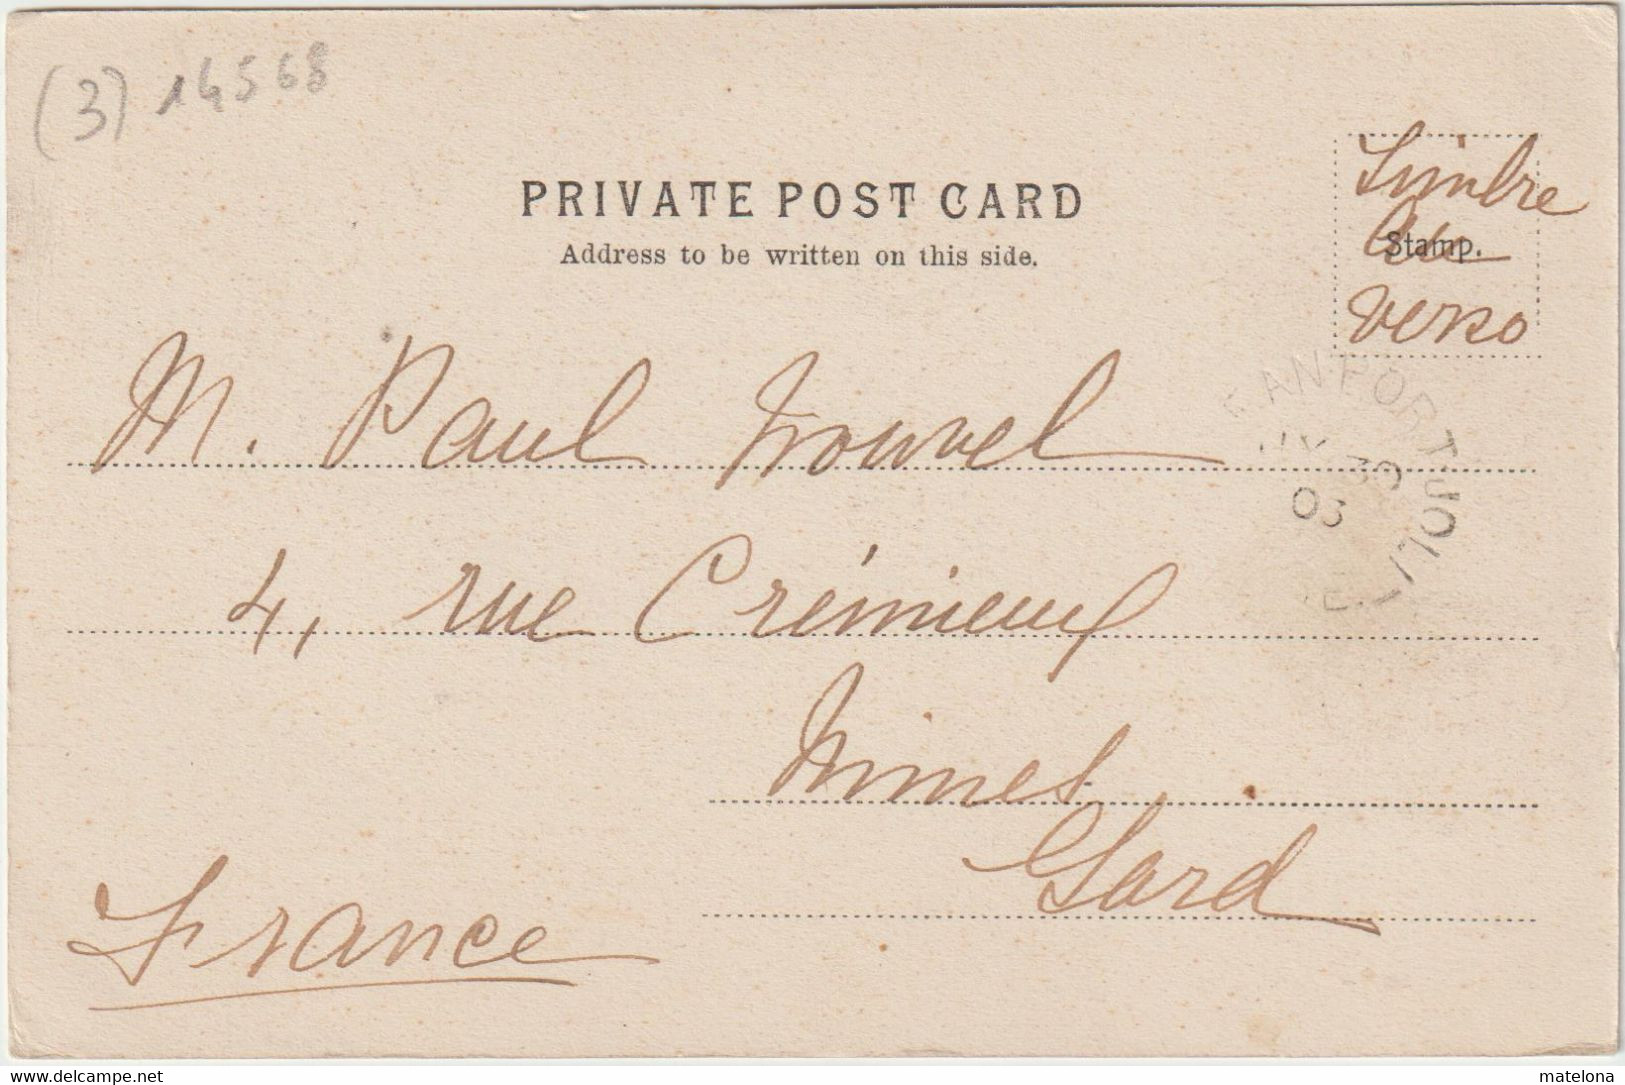 (3) 14568
PRIVATE POST CARD
Address to be written on this side.
Timbre
au
verso
Stamp.
M. Paul Nouvel
4, rue Crémieux
Nimes
Gard
France
30
03
www.delcampe.net
matelona